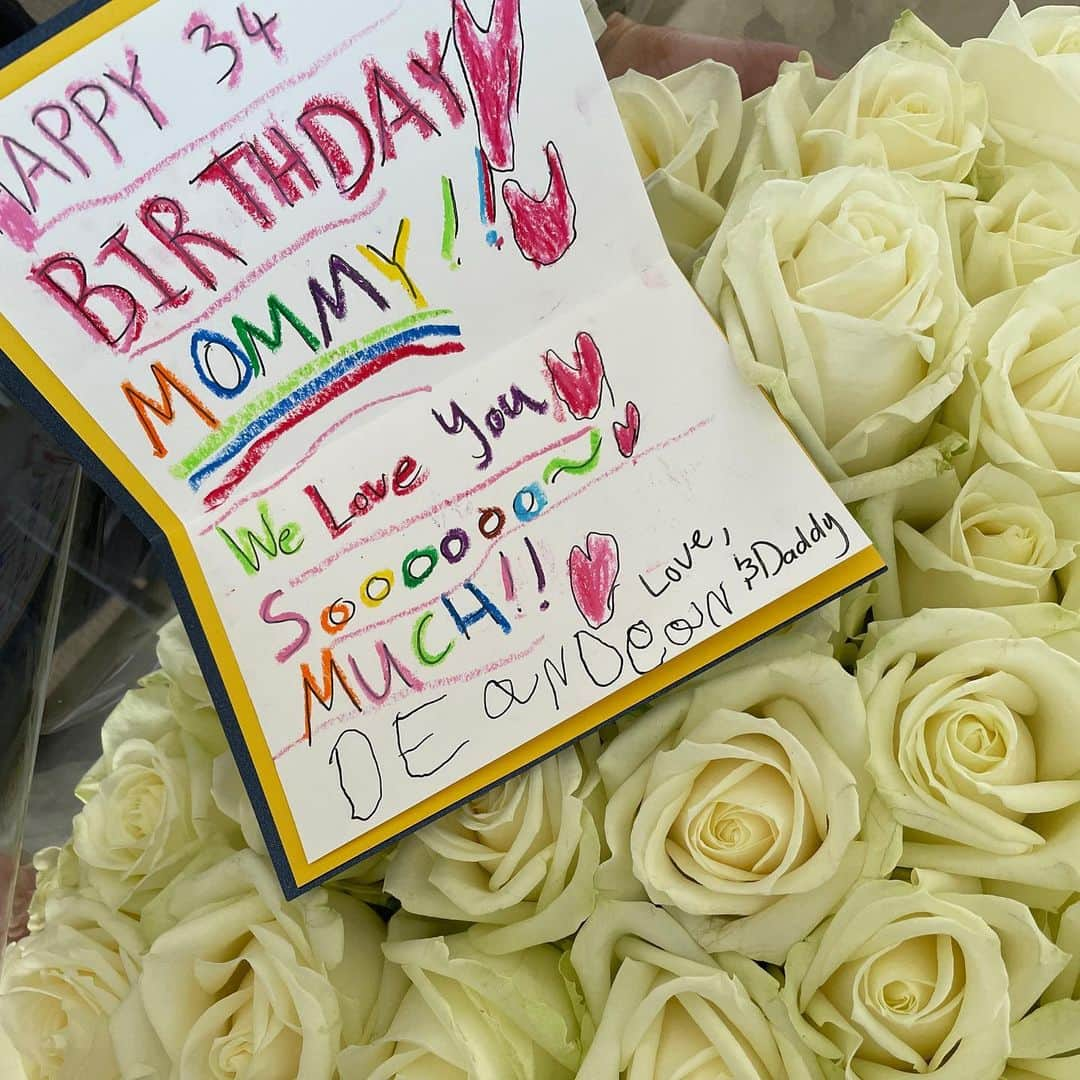 HAPPY 34
BIRTHDAY
MOMMY!!
We Love You
Soooooo~
MUCH!!
Love,
DEaNDeaN & Daddy